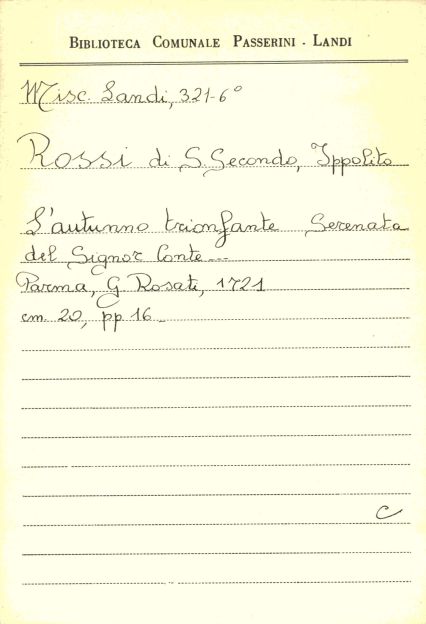 BIBLIOTECA COMUNALE PASSERINI - LANDI
Misc. Landi, 321-6°
Rossi di S. Secondo, Ippolito
L'autunno trionfante Serenata
del Signor Conte...
Parma, G. Rosati, 1721
cm. 20, pp. 16
C